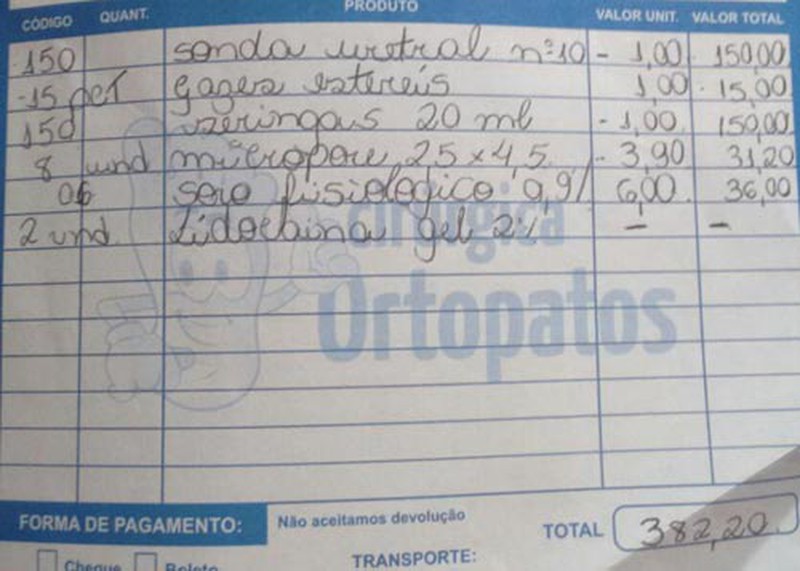 CÓDIGO QUANT. PRODUTO VALOR UNIT. VALOR TOTAL
150 sonda uretral nº 10 - 1,00 150,00
15 pct gazes estereis 1,00 - 15,00
150 seringas 20 ml - 1,00 150,00
8 und micropore 25 x 4,5 - 3,90 31,20
06 soro fisiologico 0,9% 6,00 36,00
2 und Lidocaina gel 2% - -
cirúrgica
Ortopatos
FORMA DE PAGAMENTO: Não aceitamos devolução TOTAL 382,20
Cheque Boleto TRANSPORTE: